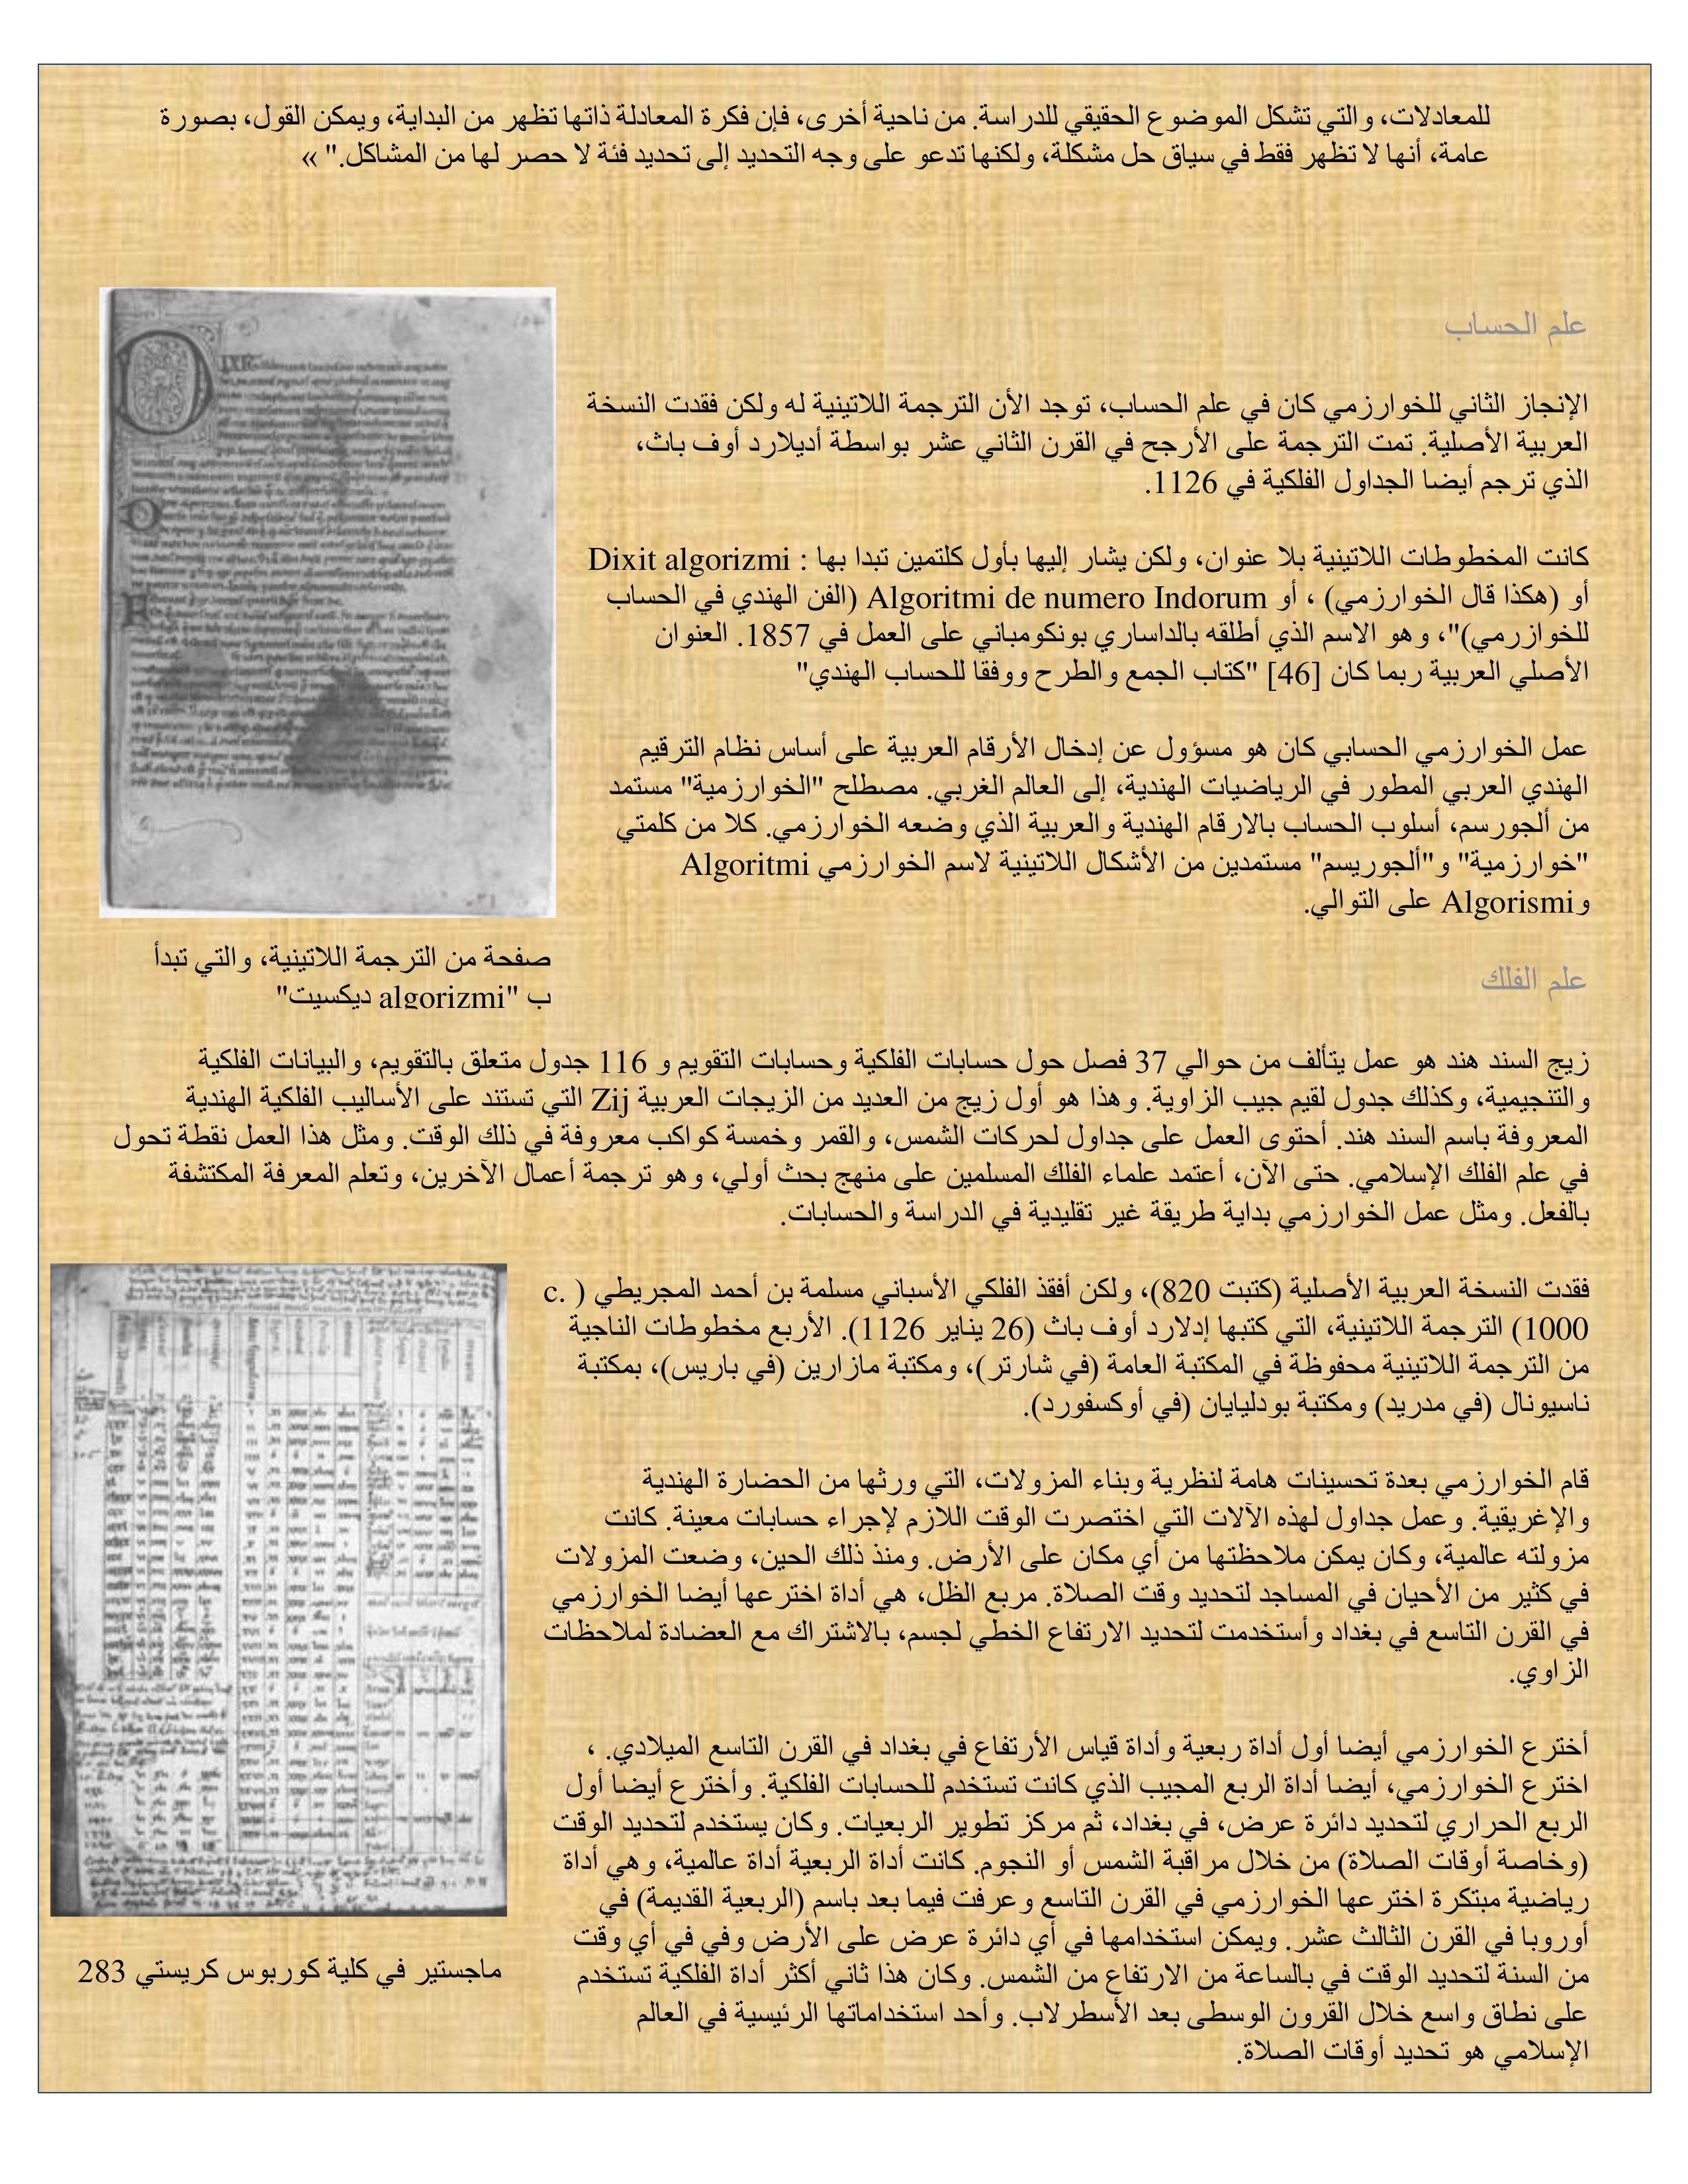 للمعادلات، والتي تشكل الموضوع الحقيقي للدراسة. من ناحية أخرى، فإن فكرة المعادلة ذاتها تظهر من البداية، ويمكن القول، بصورة
عامة، أنها لا تظهر فقط في سياق حل مشكلة، ولكنها تدعو على وجه التحديد إلى تحديد فئة لا حصر لها من المشاكل." »
علم الحساب
الإنجاز الثاني للخوارزمي كان في علم الحساب، توجد الأن الترجمة اللاتينية له ولكن فقدت النسخة
العربية الأصلية. تمت الترجمة على الأرجح في القرن الثاني عشر بواسطة أديلارد أوف باث،
الذي ترجم أيضا الجداول الفلكية في 1126.
كانت المخطوطات اللاتينية بلا عنوان، ولكن يشار إليها بأول كلتمين تبدا بها : Dixit algorizmi
أو (هكذا قال الخوارزمي) ، أو Algoritmi de numero Indorum (الفن الهندي في الحساب
للخوازرمي)"، وهو الاسم الذي أطلقه بالداساري بونكومباني على العمل في 1857. العنوان
الأصلي العربية ربما كان [46] "كتاب الجمع والطرح ووفقا للحساب الهندي"
عمل الخوارزمي الحسابي كان هو مسؤول عن إدخال الأرقام العربية على أساس نظام الترقيم
الهندي العربي المطور في الرياضيات الهندية، إلى العالم الغربي. مصطلح "الخوارزمية" مستمد
من ألجورسم، أسلوب الحساب بالارقام الهندية والعربية الذي وضعه الخوارزمي. كلا من كلمتي
"خوارزمية" و"ألجوريسم" مستمدين من الأشكال اللاتينية لاسم الخوارزمي Algoritmi
وAlgorismi على التوالي.
صفحة من الترجمة اللاتينية، والتي تبدأ
ب "algorizmi ديكسيت"
علم الفلك
زيج السند هند هو عمل يتألف من حوالي 37 فصل حول حسابات الفلكية وحسابات التقويم و 116 جدول متعلق بالتقويم، والبيانات الفلكية
والتنجيمية، وكذلك جدول لقيم جيب الزاوية. وهذا هو أول زيج من العديد من الزيجات العربية Zij التي تستند على الأساليب الفلكية الهندية
المعروفة باسم السند هند. أحتوى العمل على جداول لحركات الشمس، والقمر وخمسة كواكب معروفة في ذلك الوقت. ومثل هذا العمل نقطة تحول
في علم الفلك الإسلامي. حتى الآن، أعتمد علماء الفلك المسلمين على منهج بحث أولي، وهو ترجمة أعمال الآخرين، وتعلم المعرفة المكتشفة
بالفعل. ومثل عمل الخوارزمي بداية طريقة غير تقليدية في الدراسة والحسابات.
فقدت النسخة العربية الأصلية (كتبت 820)، ولكن أفقذ الفلكي الأسباني مسلمة بن أحمد المجريطي ( .c
1000) الترجمة اللاتينية، التي كتبها إدلارد أوف باث (26 يناير 1126). الأربع مخطوطات الناجية
من الترجمة اللاتينية محفوظة في المكتبة العامة (في شارتر)، ومكتبة مازارين (في باريس)، بمكتبة
ناسيونال (في مدريد) ومكتبة بودليايان (في أوكسفورد).
قام الخوارزمي بعدة تحسينات هامة لنظرية وبناء المزولات، التي ورثها من الحضارة الهندية
والإغريقية. وعمل جداول لهذه الآلات التي اختصرت الوقت اللازم لإجراء حسابات معينة. كانت
مزولته عالمية، وكان يمكن ملاحظتها من أي مكان على الأرض. ومنذ ذلك الحين، وضعت المزولات
في كثير من الأحيان في المساجد لتحديد وقت الصلاة. مربع الظل، هي أداة اخترعها أيضا الخوارزمي
في القرن التاسع في بغداد وأستخدمت لتحديد الارتفاع الخطي لجسم، بالاشتراك مع العضادة لملاحظات
الزاوي.
أخترع الخوارزمي أيضا أول أداة ربعية وأداة قياس الأرتفاع في بغداد في القرن التاسع الميلادي. ،
اخترع الخوارزمي، أيضا أداة الربع المجيب الذي كانت تستخدم للحسابات الفلكية. وأخترع أيضا أول
الربع الحراري لتحديد دائرة عرض، في بغداد، ثم مركز تطوير الربعيات. وكان يستخدم لتحديد الوقت
(وخاصة أوقات الصلاة) من خلال مراقبة الشمس أو النجوم. كانت أداة الربعية أداة عالمية، وهي أداة
رياضية مبتكرة اخترعها الخوارزمي في القرن التاسع وعرفت فيما بعد باسم (الربعية القديمة) في
أوروبا في القرن الثالث عشر. ويمكن استخدامها في أي دائرة عرض على الأرض وفي في أي وقت
من السنة لتحديد الوقت في بالساعة من الارتفاع من الشمس. وكان هذا ثاني أكثر أداة الفلكية تستخدم
على نطاق واسع خلال القرون الوسطى بعد الأسطرلاب. وأحد استخداماتها الرئيسية في العالم
الإسلامي هو تحديد أوقات الصلاة.
ماجستير في كلية كوربوس كريستي 283